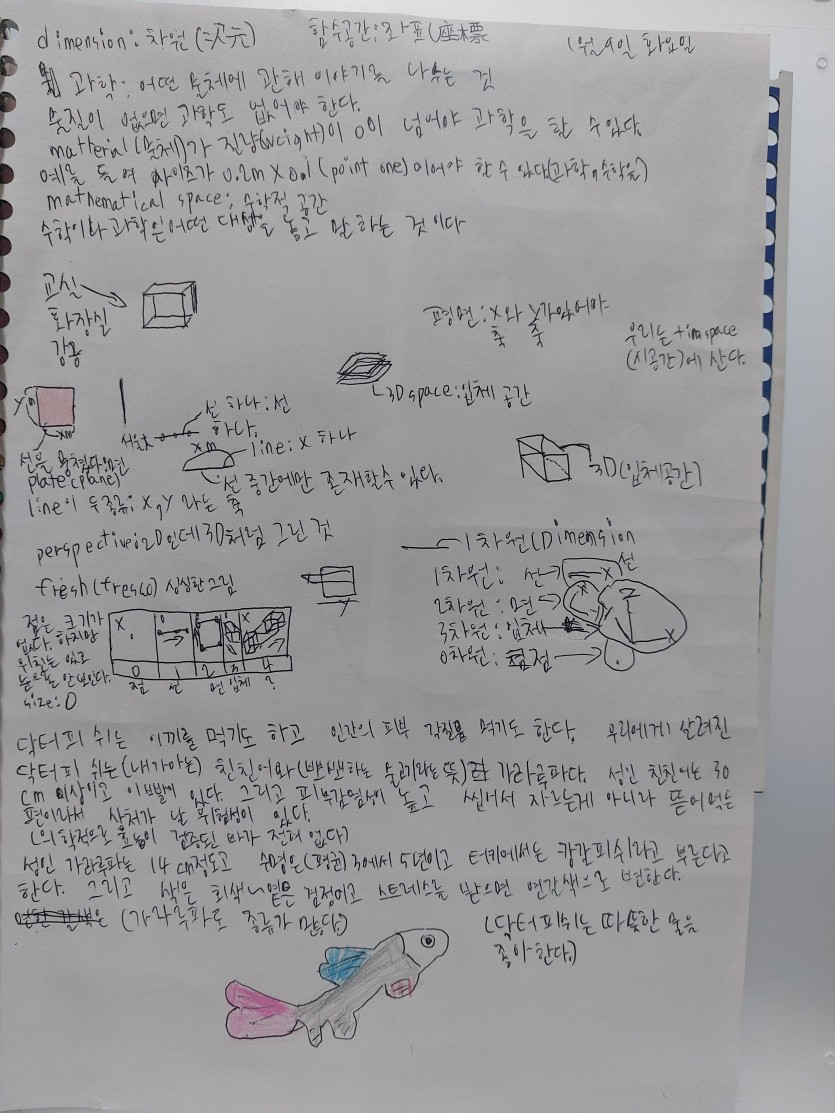 dimension: 차원(次元) 함수공간: 좌표(座標 1월 9일 화요일
과학: 어떤 물체에 관해 이야기를 나누는 것
물질이 없으면 과학도 없어야 한다.
matterial(물체)가 질량(weight)이 0이 넘어야 과학을 할 수 있다.
예를 들어 사이즈가 0.2m X 0.1(point one)이어야 할 수 있다(과학,수학을)
mathematical space: 수학적 공간
수학이와 과학은 어떤 대상을 놓고 말하는 것이다
교실
화장실
강용
평면: X와 Y가 있어야
축 축
우리는 + im space
(시공간)에 산다.
3D space: 입체 공간
Y
xm
선 하나: 선
하나.
xm
line: X 하나
선 중간에만 존재할수 있다.
선을
plate(plane)
line이 두종류: X, Y 라는 축
3D(입체공간)
perspective: 2D인데 3D처럼 그린 것
fresh(fresco) 싱싱한 그림
Y
1차원(Dimemsion
1차원: 선 X 선
2차원: 면 X Y
3차원: 입체 Z X
0차원: 점
점은 크기가
없다. 하지만
위치는 있고
눈으로는 안보인다.
size: 0
X
0 1 2 3 4
점 선 면 입체 ?
닥터피쉬는 이끼를 먹기도 하고 인간의 피부 각질을 먹기도 한다. 우리에게 알려진
닥터피쉬는(내가아는) 친친어와 가라루파다. 성인 친친어는 30
cm 이상이고 이빨이 있다. 그리고 피부감염성이 높고 씹어서 자르는게 아니라 뜯어먹는
편이라서 상처가 날 위험성이 있다.
(의학적으로 효능이 검증된 바가 전혀 없다)
성인 가라루파는 14cm정도고 수명은(평균)3에서 5년이고 터키에서는 캉갈피쉬라고 부른다고
한다. 그리고 색은 회색~옅은 검정이고 스트레스를 받으면 연갈색으로 변한다.
(가라루파도 종류가 많다.)
(닥터피쉬는 따뜻한 물을
좋아한다.)